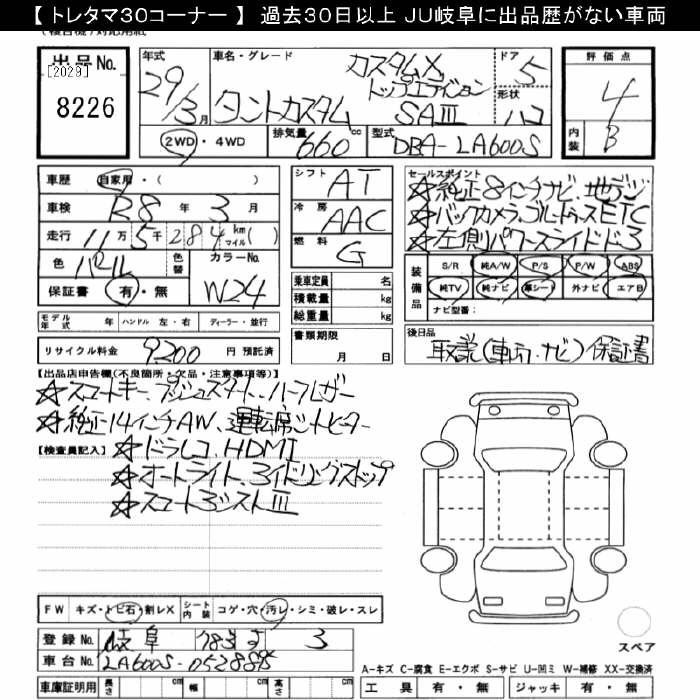 【 トレタマ30コーナー 】 過去30日以上 JU岐阜に出品歴がない車両
出品No. [2029] 8226
年式 29/3月
車名・グレード タントカスタム カスタムX トップエディション SAⅢ
ドア 5
形状 ハコ
評価点 4
内装 B
2WD・4WD
排気量 660 cc
型式 DBA-LA600S
車歴 自家用・( )
車検 R8 年 3 月
走行 11万5千284 km マイル( )
色 パール 色替
カラーNo. W24
保証書 有・無
シフト AT
冷房 AAC
燃料 G
乗車定員 名
積載量 kg
総重量 kg
書類期限
月 日
セールスポイント
☆純正8インチナビ、地デジ
☆バックカメラ、ETC
☆左側パワースライドドア
装備品 S/R 純A/W P/S P/W ABS
純TV 純ナビ 革シート 外ナビ エアB
ナビ型番：
モデル年式 年 ハンドル 左・右 ディーラー・並行
リサイクル料金 9200 円 預託済
後日品
取説(車両、ナビ)保証書
【出品店申告欄(不良箇所・欠品・注意事項等)】
☆スマートキー、プッシュスタート、ハーフレザー
☆純正14インチAW、運転席シートヒーター
【検査員記入】 ☆ドラレコ、HDMI
☆オートライト、アイドリングストップ
☆スマートアシストⅢ
FW キズ・トビ石・割レX シート内装 コゲ・穴・汚レ・シミ・破レ・スレ
登録No. 岐阜 3
車台No. LA600S-0528895
車庫証明用 長さ cm 幅 cm 高さ cm
スペア
A-キズ C-腐食 E-エクボ S-サビ U-凹ミ W-補修 XX-交換済
工具 有・無 ジャッキ 有・無